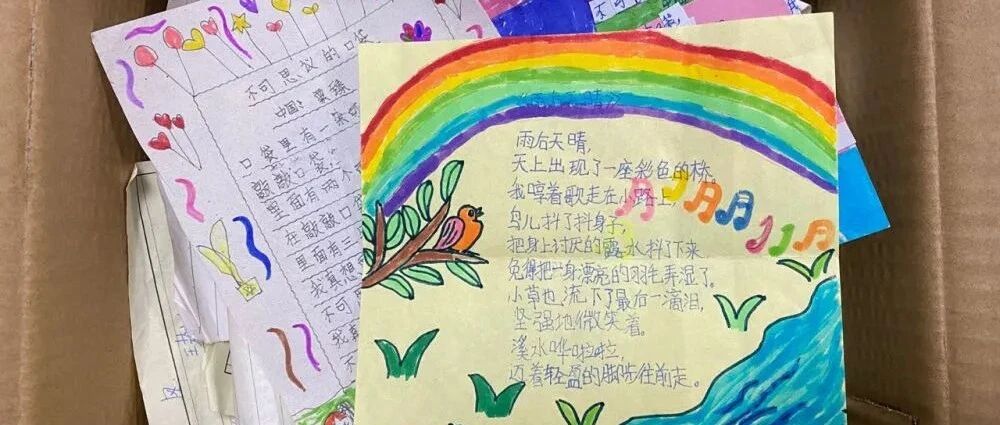 不可思议的口袋
口袋里有一条
敲敲口袋
里面有两个
在敲敲口袋
里面有三
我真想
不可
我真
不
雨后天晴
雨后天晴，
天上出现了一座彩色的桥。
我哼着歌走在小路上，
鸟儿抖了抖身子，
把身上讨厌的露水抖下来
免得把一身漂亮的羽毛弄湿了。
小草也流下了最后一滴泪，
坚强地微笑着。
溪水哗啦啦，
迈着轻盈的脚步往前走。